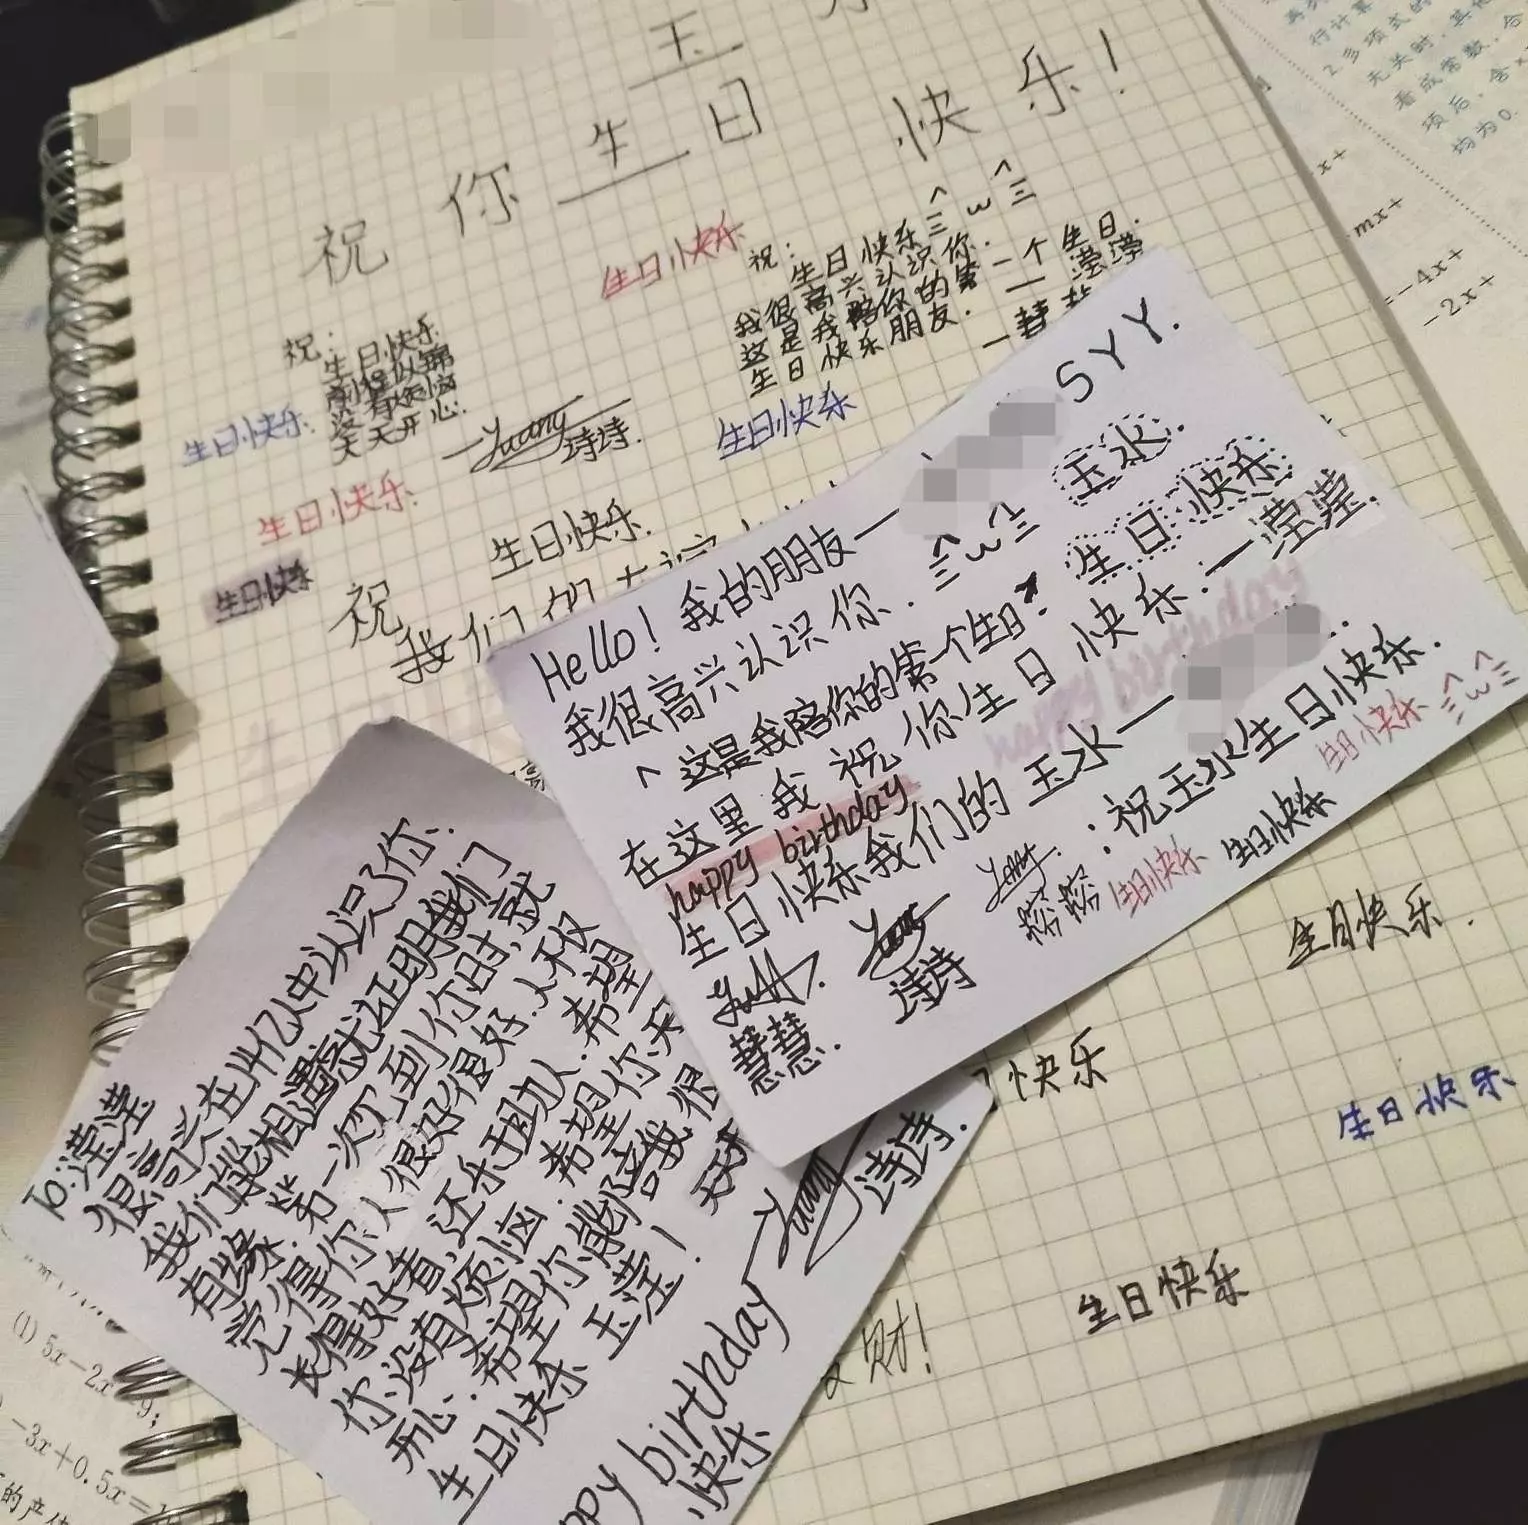 玉
祝 你 生 日 快 乐！
生日快乐
祝：
生日快乐
前程似锦
没有烦恼
天天开心.
一Yuang 诗诗.
生日快乐.
生日快乐.
生日快乐
祝：
生日快乐 三^ω^三
我很高兴认识你.
这是我陪你的第一个生日.
生日快乐朋友. 一滢滢
生日快乐
生日快乐.
祝
我们的
Hello！我的朋友—
SYY.
我很高兴认识你. 三^ω^三 玉水.
^这是我陪你的第一个生日. 生日快乐
在这里我祝你生日快乐.—滢滢.
happy birthday
happy birthday
生日快乐我们的玉水—
慧慧.
诗诗
榕榕：祝玉水生日快乐.
生日快乐
生日快乐
生日快乐 三^ω^三
To:滢滢
很高兴在14亿人中认识了你、
我们能相遇就证明我们
有缘.第一次见到你时、就
觉得你人很好很好.人不仅
长得好看、还乐于助人.希望
你没有烦恼.希望你天天
开心.希望你能陪我很
生日快乐 玉滢！
诗诗.
ppy birthday
快乐
生日快乐.
快乐
生日快乐
生日快乐
财！
行计算
2 多项式的
无关时，其他
看成常数，合
项后，含x
均为0.
x+
mx+
=-4x+
-2x+
(1) 5x-2x
9;
-3x+0.5x=1